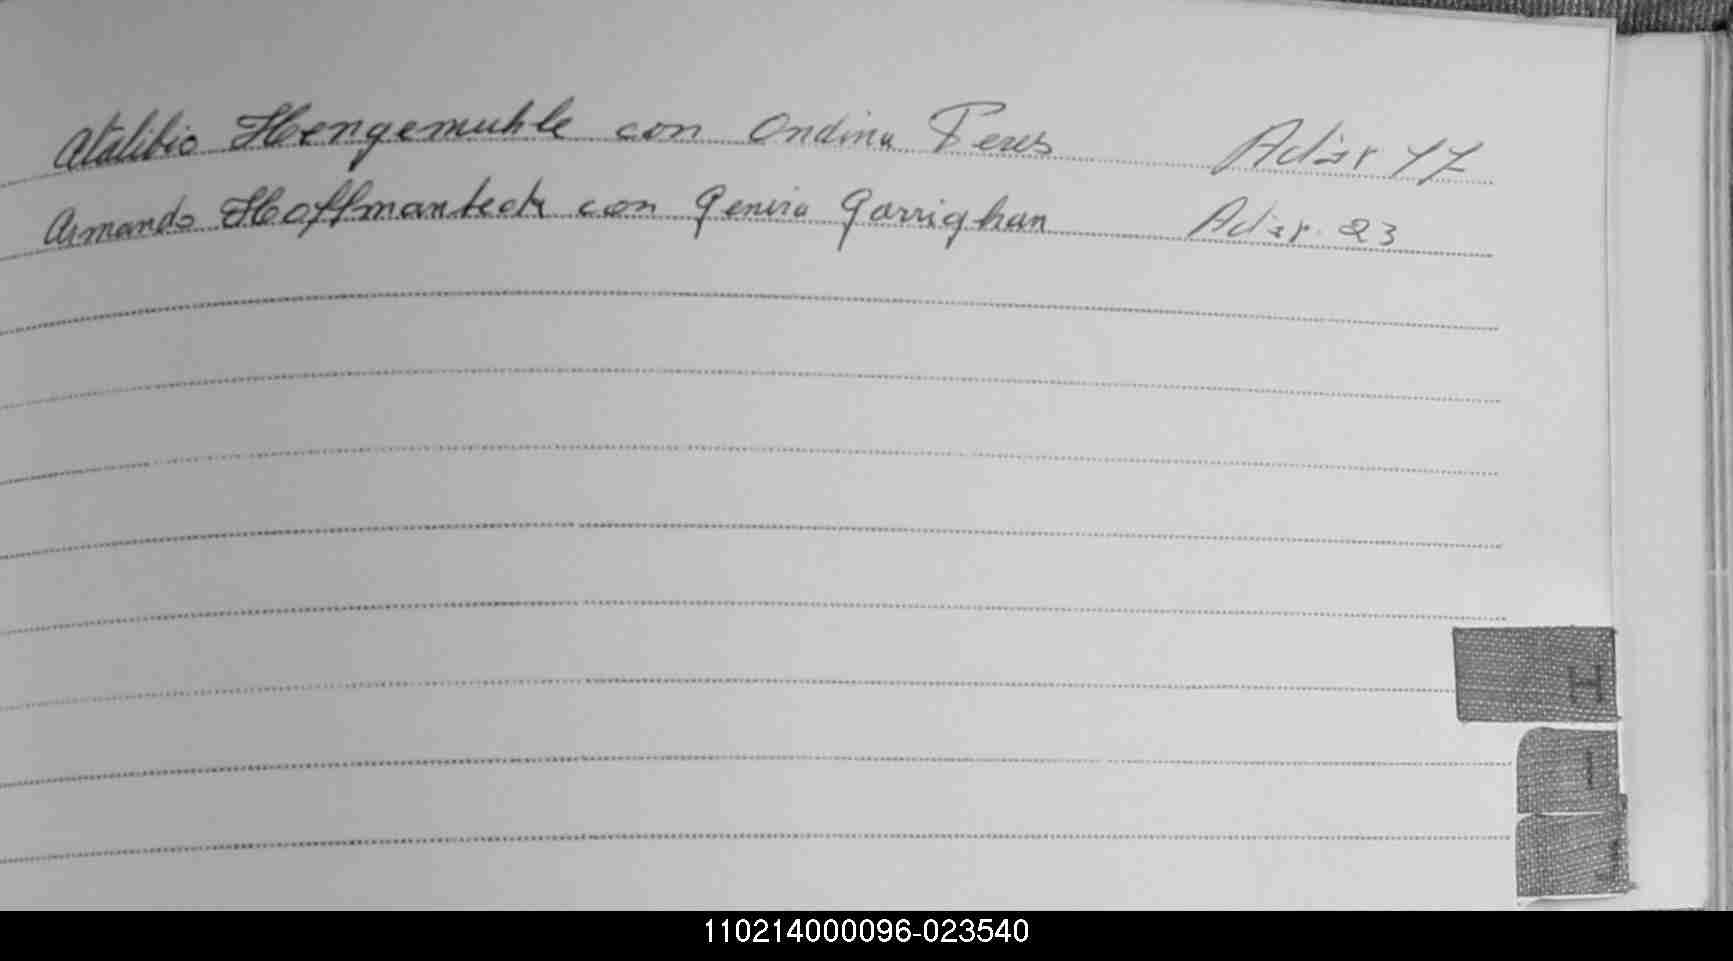 Atalibio Hengemuhle con Ondina Peres Adir 17
Armando Hoffmanbeck con Genira Garrighan Adir. 23
H
I
J
110214000096-023540